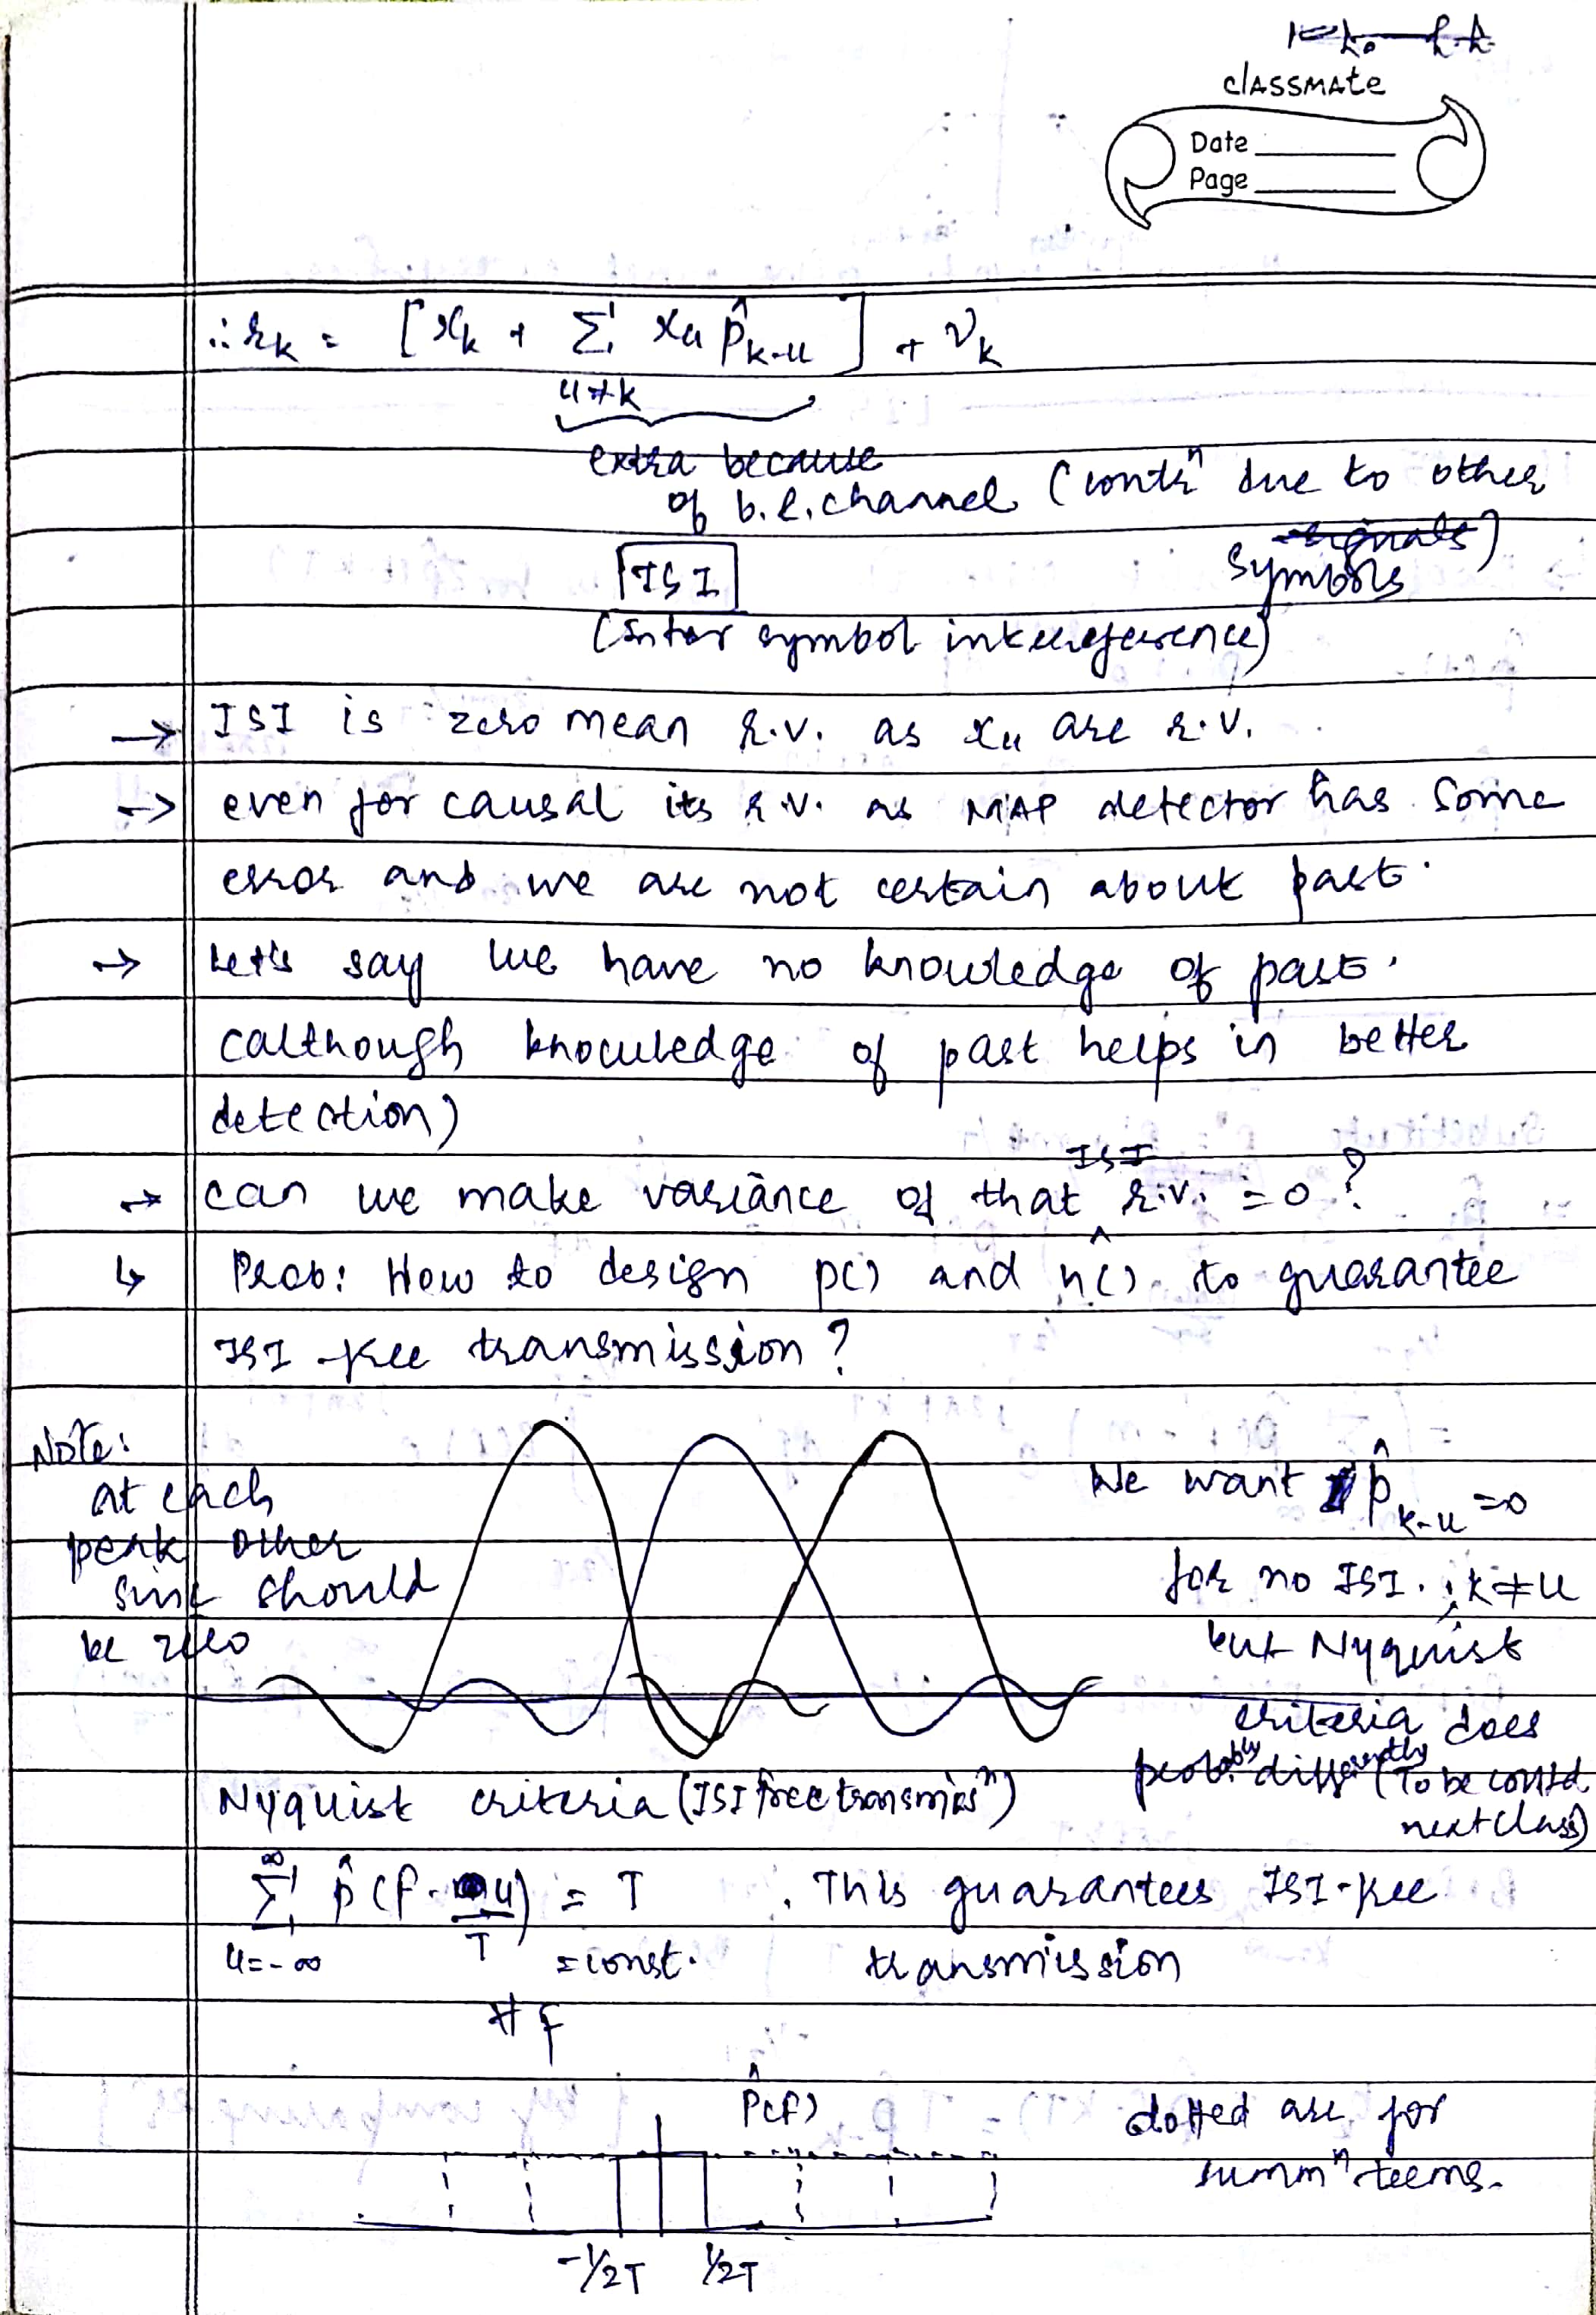 classmate
Date
Page
∴ rk = [xk + Σ xu p̂k-u] + νk
u≠k
extra because
of b.l. channel (contrⁿ due to other
signals)
symbols
ISI
(Inter symbol inteereference)
→ ISI is zero mean r.v. as xu are r.v.
→ even for causal its r.v. as MAP detector has some
error and we are not certain about past.
→ Let's say we have no knowledge of past.
(although knowledge of past helps in better
detection)
ISI
→ can we make variance of that r.v. = 0 ?
↳ Prob: How to design p() and h() to guarantee
ISI-free transmission?
Note:
at each
peak other
sinc should
be zero
We want p̂k-u = 0
for no ISI. ; k≠u
but Nyquist
criteria does
probably differently (To be contd
next class)
Nyquist criteria (ISI free transmisⁿ)
∞
Σ p̂(f - u/T) = T . This guarantees ISI-free
u=-∞ = const. transmission
∀ f
p̂(f)
dotted are for
summⁿ terms.
-1/2T 1/2T